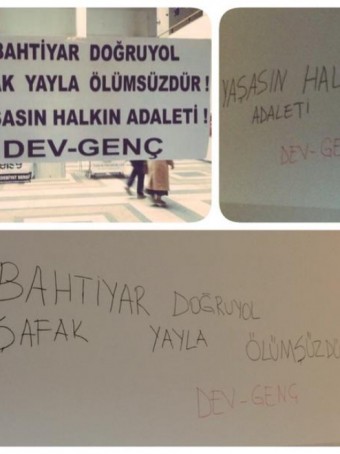 BAHTİYAR DOĞRUYOL
AK YAYLA ÖLÜMSÜZDÜR!
ŞASIN HALKIN ADALETİ!
DEV-GENÇ
YAŞASIN HALK
ADALETİ
DEV-GE
BAHTİYAR DOĞRUYOL
ŞAFAK YAYLA ÖLÜMŞÜZDÜ
DEV-GENÇ